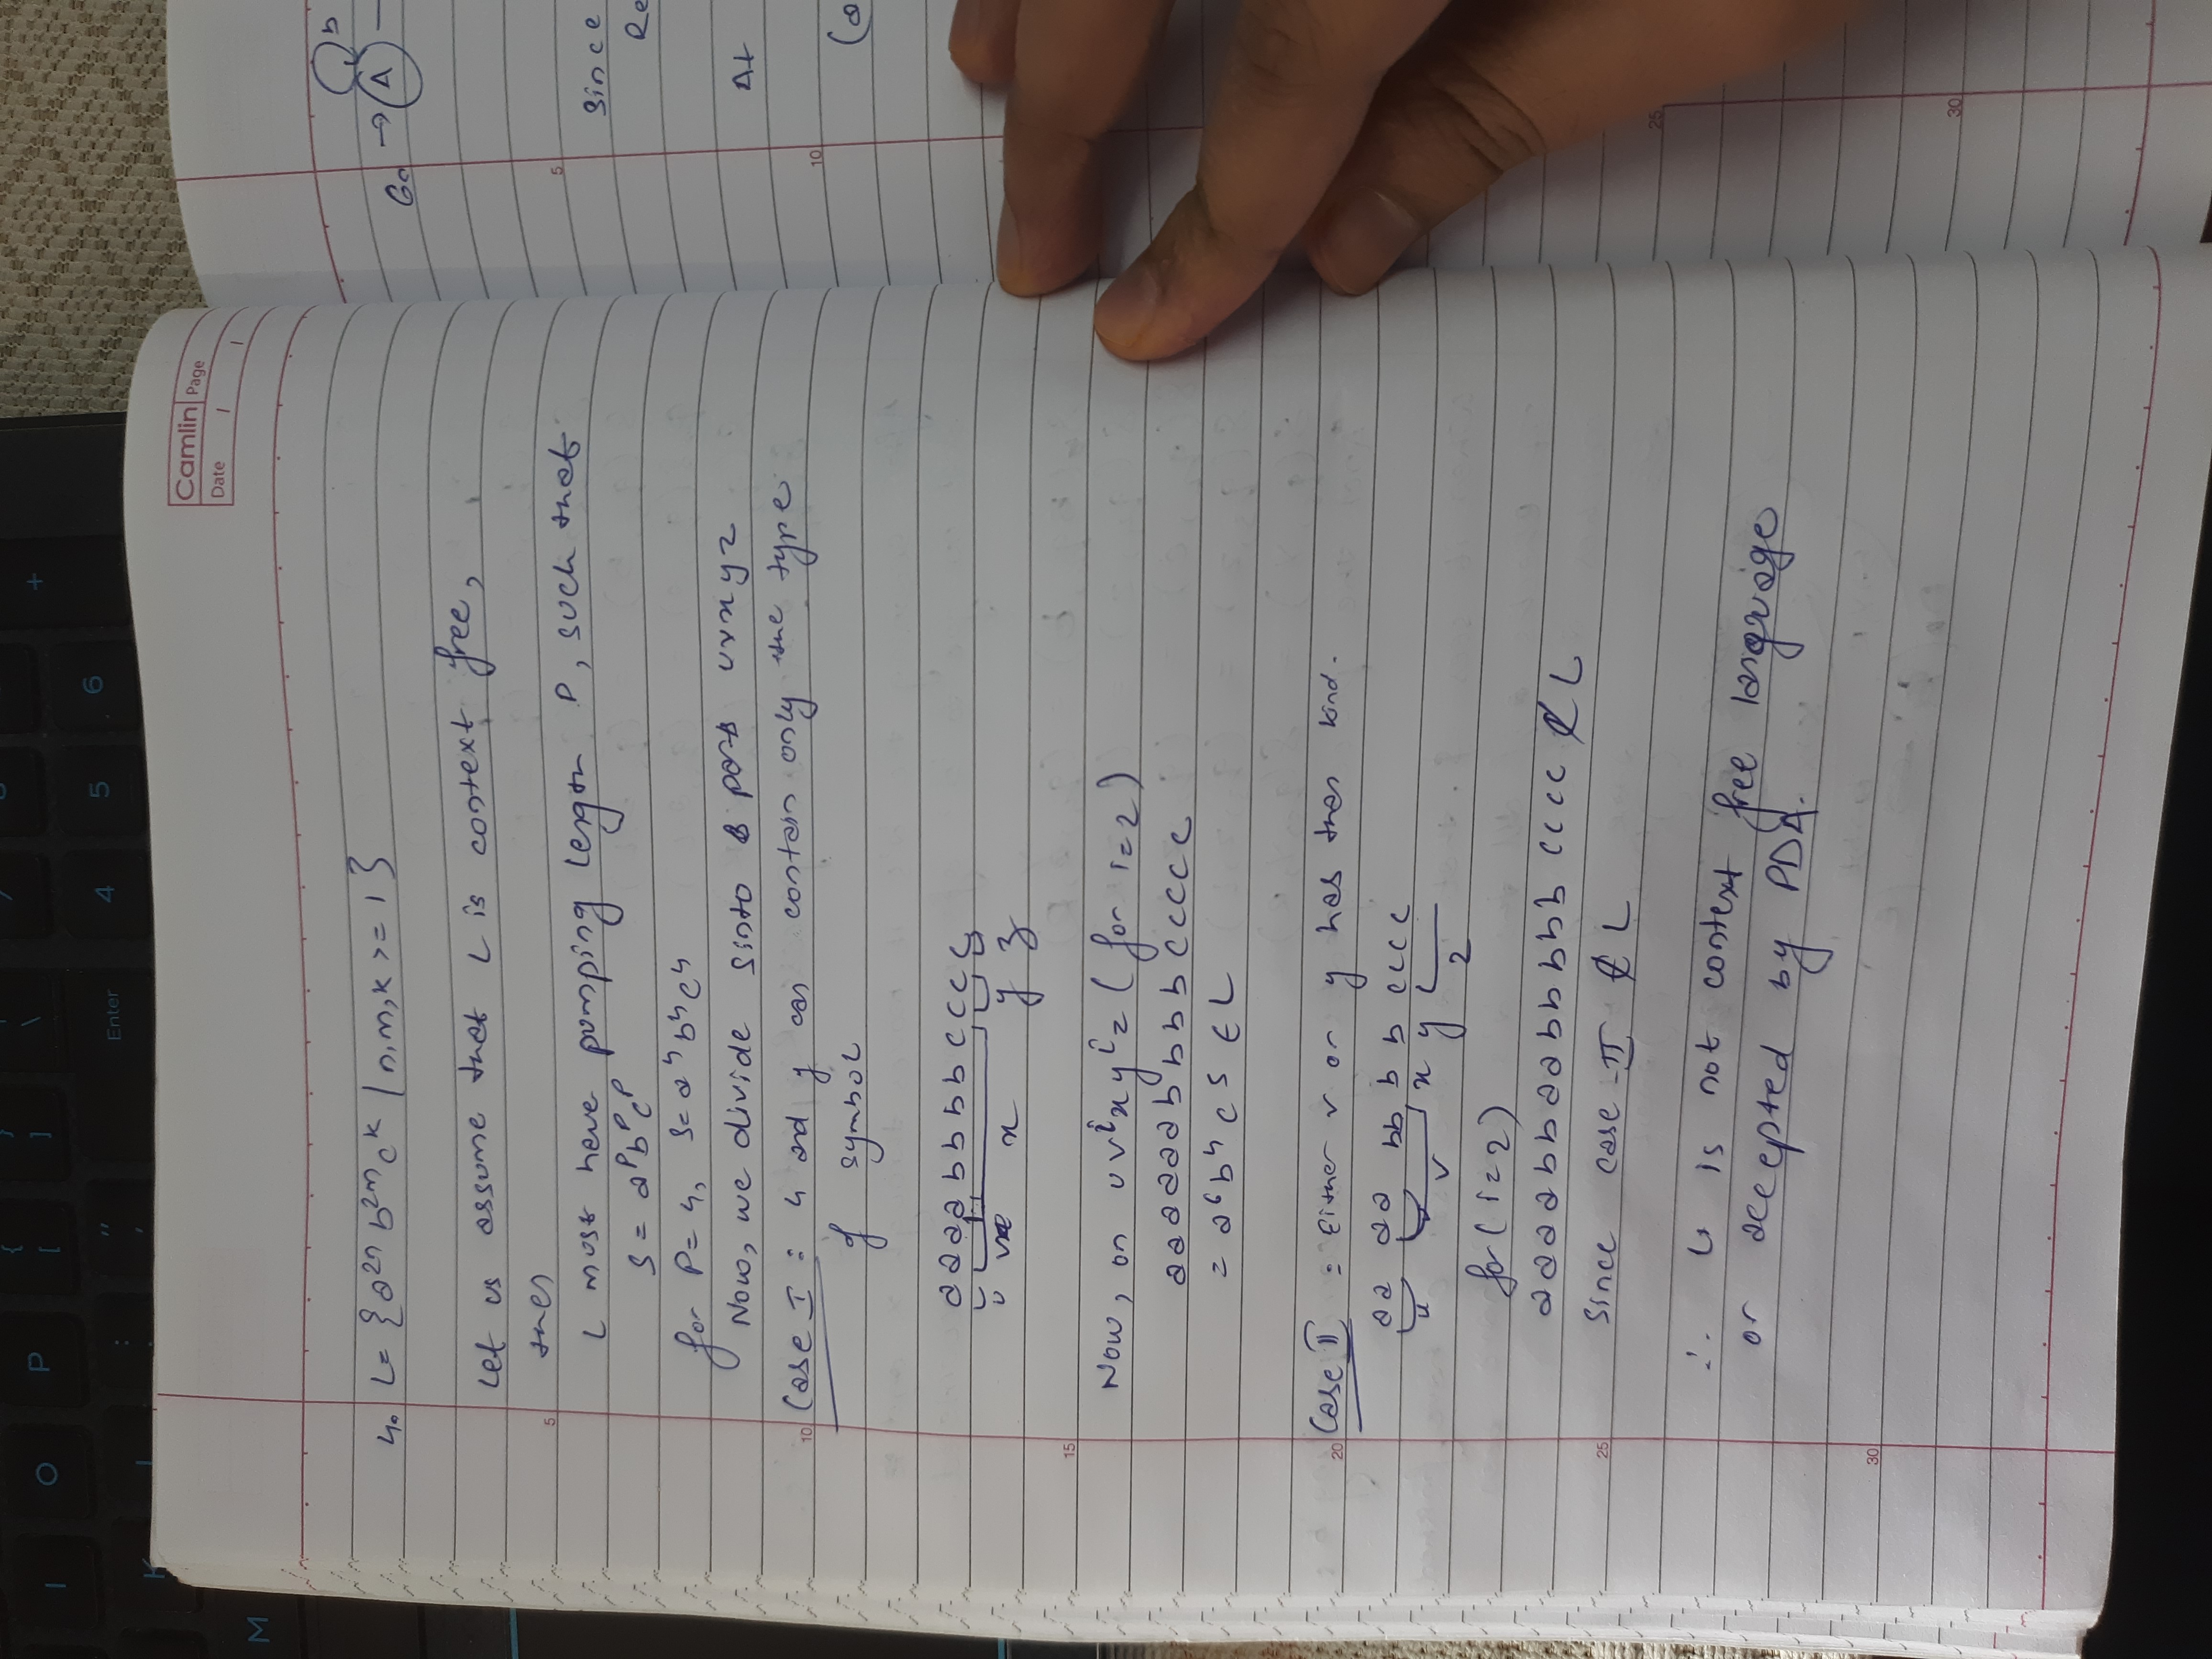 I O P { [ } ] \ +
K : " ' Enter 4 5 6
M
Camlin Page
Date / /
4. L = { a²ⁿ b²ᵐ cᵏ / n, m, k >= 1 }
Let us assume that L is context free,
then
5
L must have pumping length P, such that
S = aᴾbᴾcᴾ
for P = 4, S = a⁴b⁴c⁴
Now, we divide s into parts uvxyz
10 Case I : 4 and y can contain only the type
of symbol
a a a a b b b b c c c c
u v x y z
15
Now, on uvⁱxyⁱz ( for i = 2 )
a a a a a a b b b b c c c c c
= a⁶b⁴c⁵ ∈ L
20 Case II : Either v or y has then kind.
aa aa bb b b cccc
u v x y z
for ( i = 2 )
a a a a b b a a b b b b b c c c c ∉ L
25 Since case - II ∉ L
∴ is not context free language
or accepted by PDA.
30
b
6. → A
5
Since
Re
At
10
(a
25
30